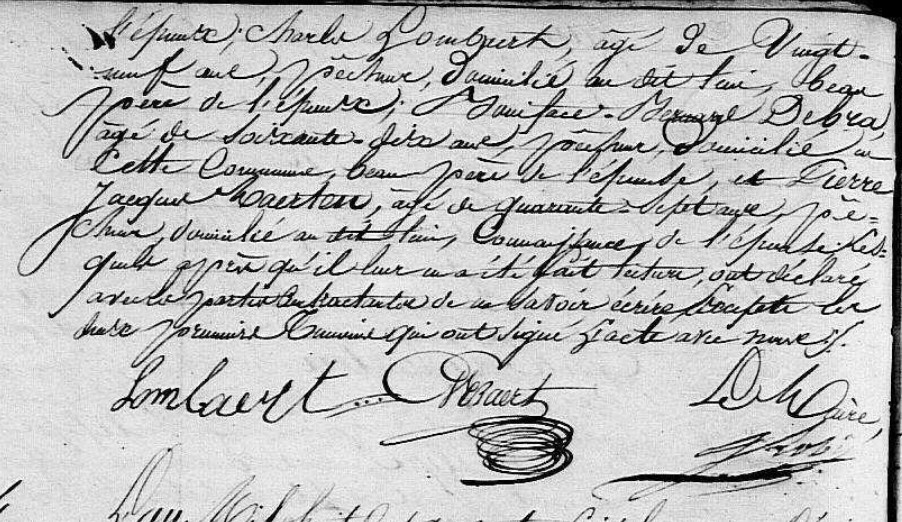 l'épouse; Charles Lombaert, âgé de Vingt-
neuf ans, pêcheur, domicilié au dit lieu, beau
père de l'épouse; Boniface-Bernard Debra
âgé de soixante-dix ans, pêcheur, Domicilié en
Cette Commune, beau père de l'épouse, et Pierre
Jacques Maerten, âgé de quarante-sept ans, pê=
cheur, domicilié au dit lieu, Connaissance de l'épouse. Les=
quels après qu'il leur en a été fait lecture, ont déclaré
avec les parties Contractantes de ne savoir écrire Excepté les
deux premiers témoins qui ont signé l'acte avec nous ./.
Lombaert ... Debaert
Le Maire,
D'un